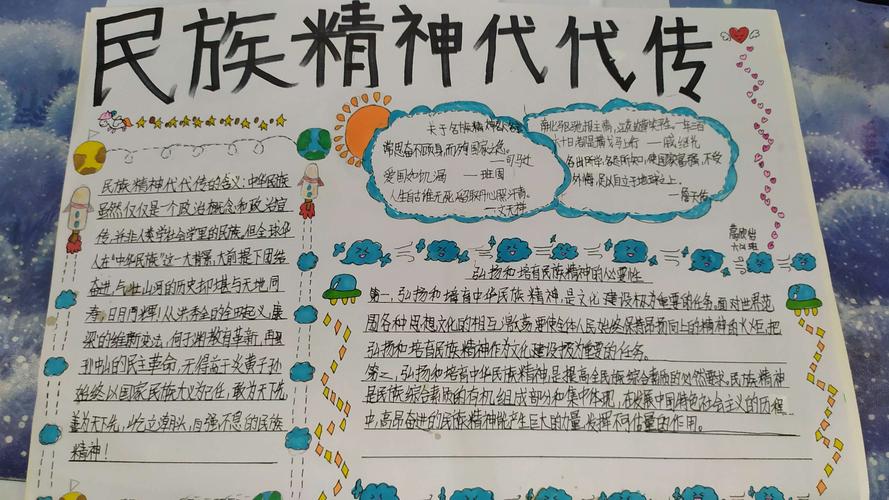 民族精神代代传
民族精神代代传的含义:中华民族
虽然仅仅是一个政治概念和政治宣
传,并非人类学社会学里的民族。但全球华
人在"中华民族"这一大背景,大前提下团结
奋进,与壮山河的历史却堪与天地同
寿,日月同辉!从洪秀全的金田起义,康
梁的维新变法,何于渊教育革新,再
孙中山的民主革命,无得益于炎黄子孙
始终以国家民族大义为己任,敢为天下先
善为天下先,屹立潮头,自强不息的民族
精神!
关于名族精神的名言
常思奋不顾身,而殉国家之急。
——司马迁
爱国如饥渴 ——班固
人生自古谁无死,留取丹心照汗青。
——文天祥
南北驱驰报主情,江花边草笑平生。一年三百
六十日,都是横戈马上行 ——戚继光
各出所学,各尽所知,使国家富强,不受
外侮,足以自立于地球之上。
——詹天佑
弘扬和培育民族精神的必要性
第一,弘扬和培育中华民族精神,是文化建设极为重要的任务。面对世界范
围各种思想文化的相互激荡,要使全体人民始终保持昂扬向上的精神的火炬,把
弘扬和培育民族精神作为文化建设极为重要的任务。
第二,弘扬和培育中华民族精神,是提高全民族综合素质的必然要求。民族精神
是民族综合素质的有机组成部分和集中体现,在发展中国特色社会主义的历程
中,高昂奋进的民族精神能产生巨大的力量,发挥不可估量的作用。